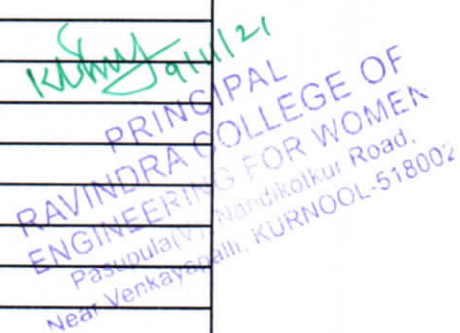 9/11/21
PRINCIPAL
RAVINDRA COLLEGE OF
ENGINEERING FOR WOMEN
Pasupula(V), Nandikotkur Road,
Near Venkayapalli, KURNOOL-518002